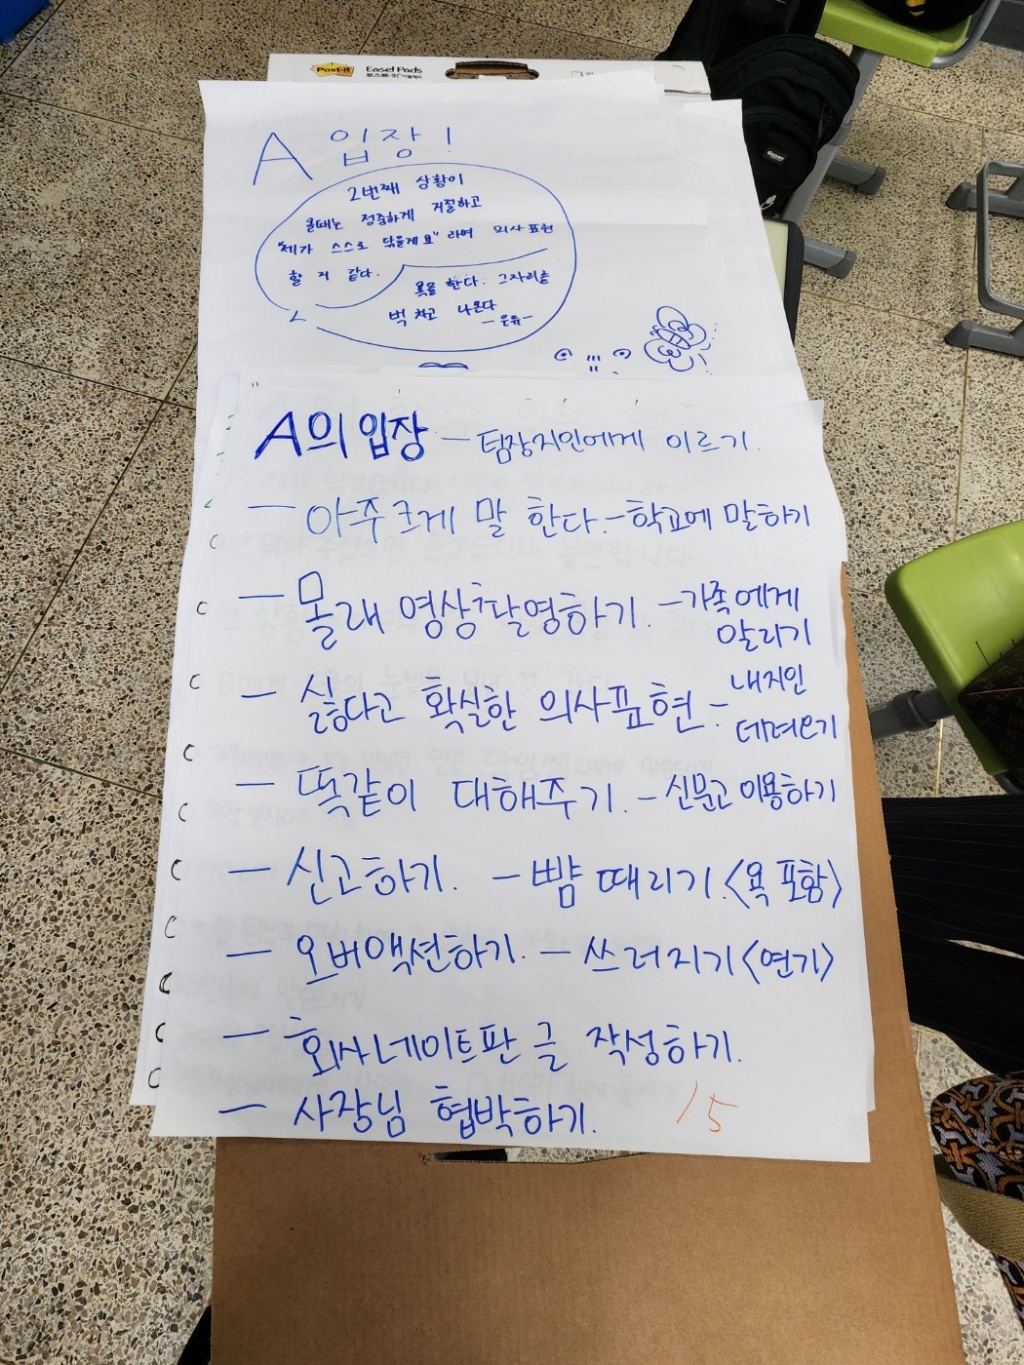 Post-it Easel Pads
포스트-잇
A 입장!
2번째 상황이
올때는 정중하게 거절하고
"제가 스스로 닦을게요" 라며 의사표현
할 거 같다.
욕을 한다. 그자리를
벅차고 나온다
-은유-
A의 입장 - 팀장지인에게 이르기.
- 아주크게 말 한다. - 학교에 말하기
- 몰래 영상촬영하기. - 가족에게
알리기
- 싫다고 확실한 의사표현 - 내지인
데려오기
- 똑같이 대해주기. - 신문고 이용하기
- 신고하기. - 뺨 때리기.<욕 포함>
- 오버액션하기. - 쓰러지기<연기>
- 회사네이트판 글 작성하기.
- 사장님 협박하기.
15